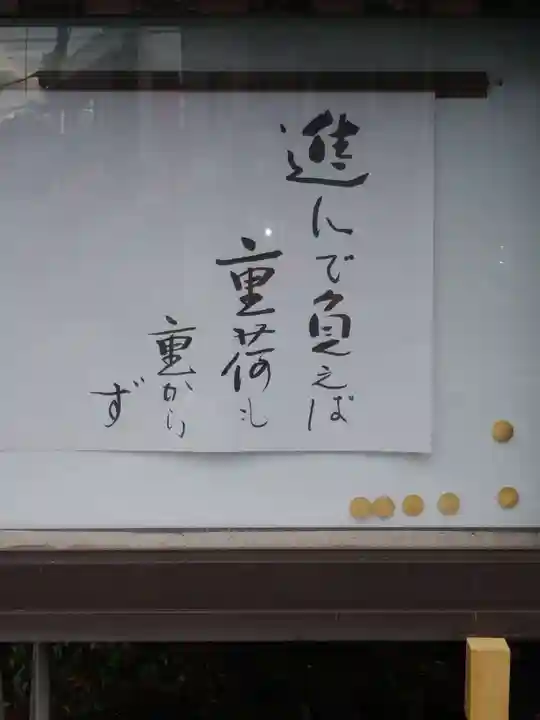 進んで負えば
重荷も
重から
ず